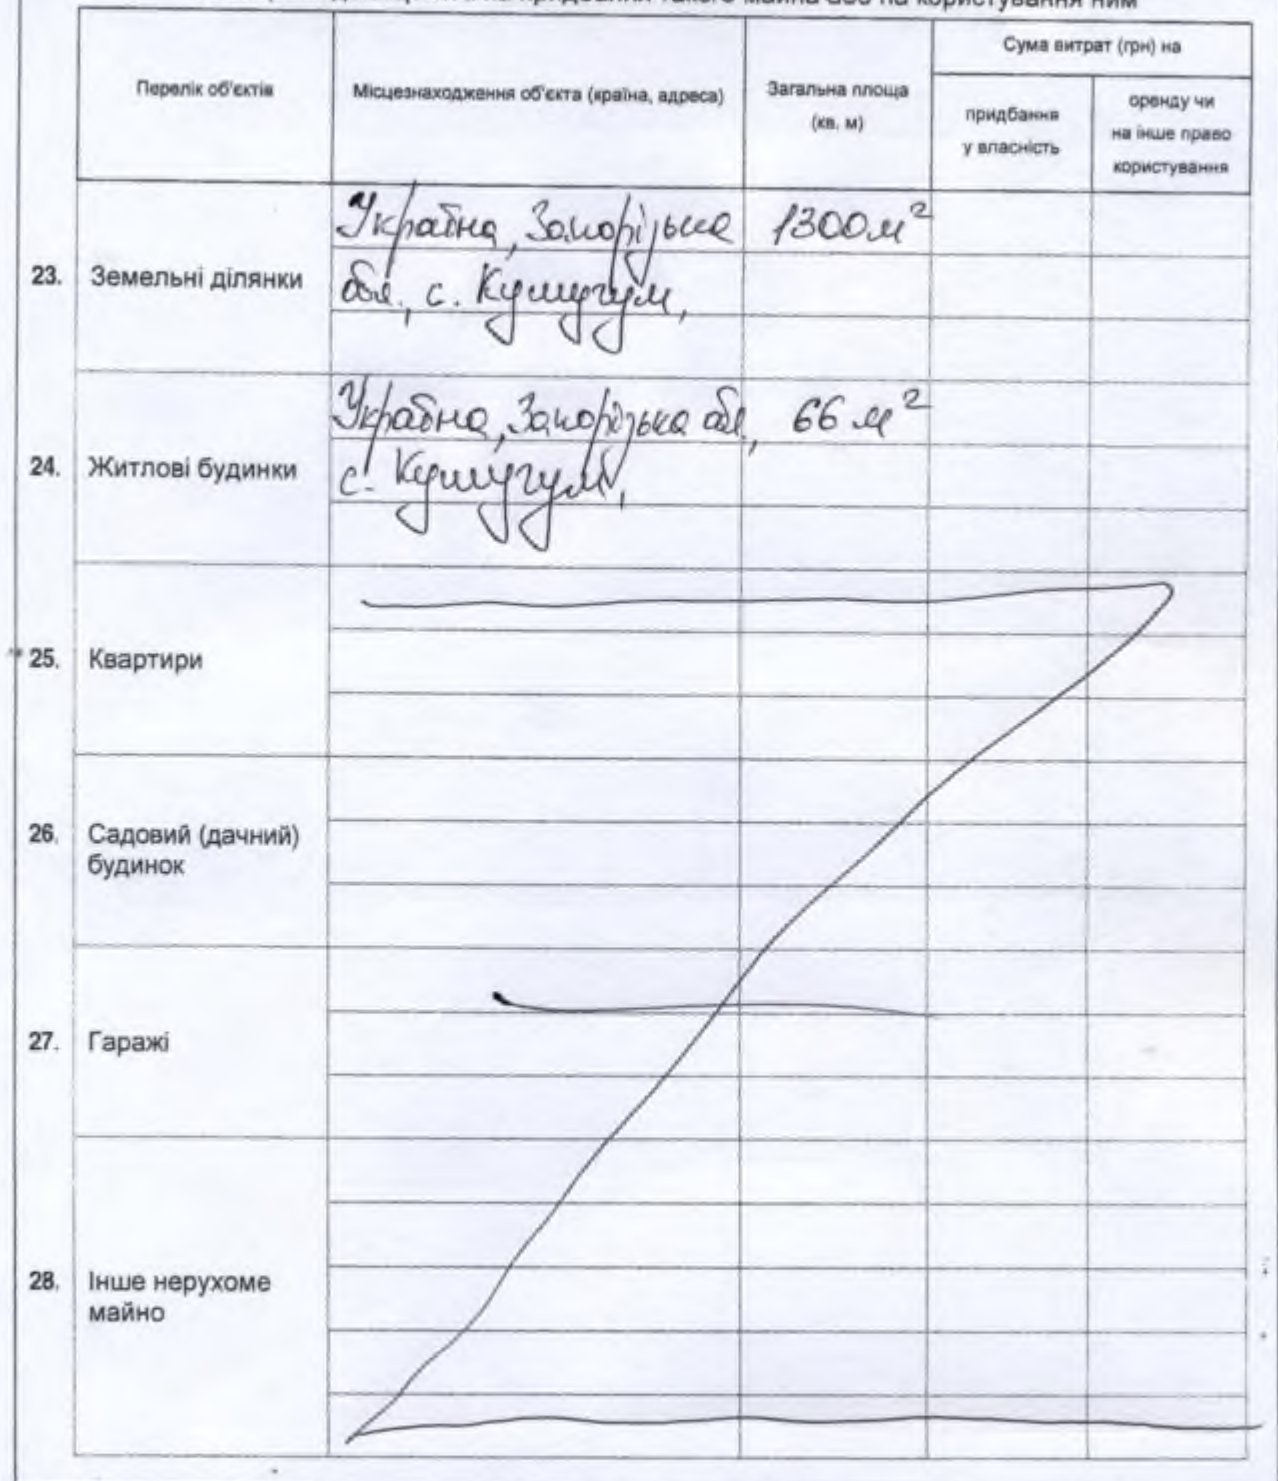 придбання такого майна або на користування ним
Перелік об'єктів
Місцезнаходження об'єкта (країна, адреса)
Загальна площа
(кв. м)
Сума витрат (грн) на
придбання
у власність
оренду чи
на інше право
користування
23. Земельні ділянки
Україна, Запорізька 1300 м²
обл., с. Кушугум,
24. Житлові будинки
Україна, Запорізька обл., 66 м²
с. Кушугум,
25. Квартири
26. Садовий (дачний)
будинок
27. Гаражі
28. Інше нерухоме
майно